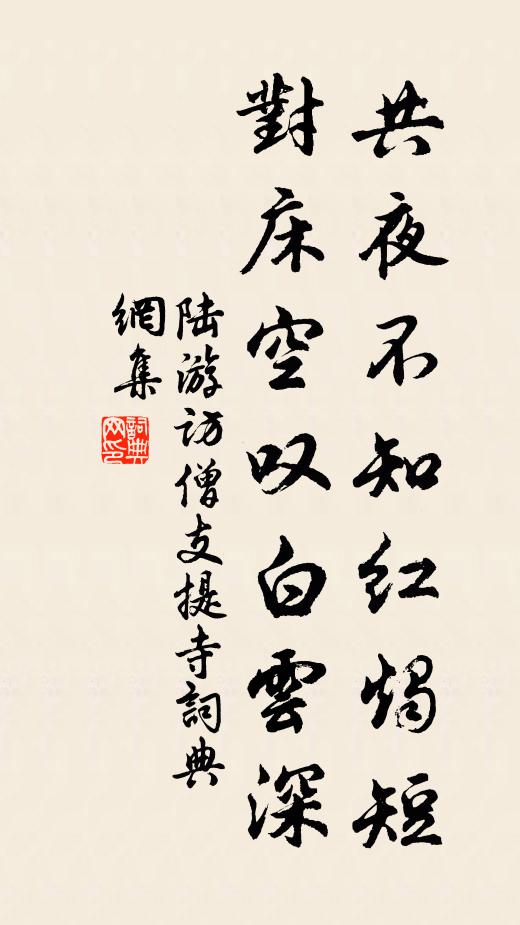 共夜不知红烛短
對床空叹白雲深
陆游访僧支提寺詞典
網集
詞典網印